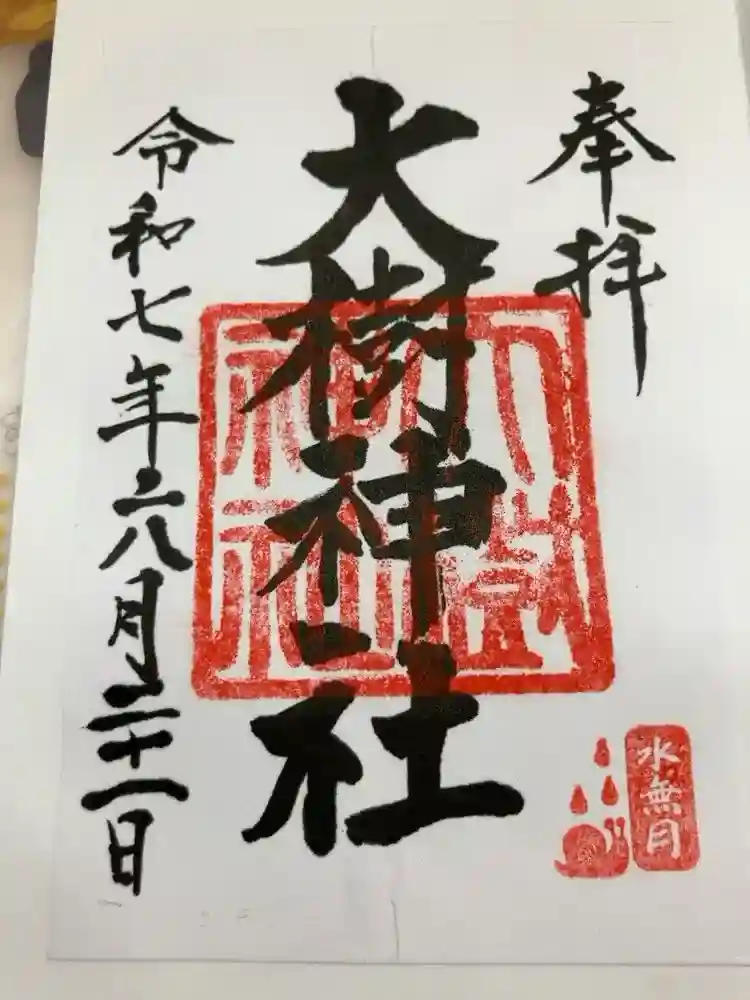 奉拝
大樹神社
大樹神社
水無月
令和七年六月二十一日